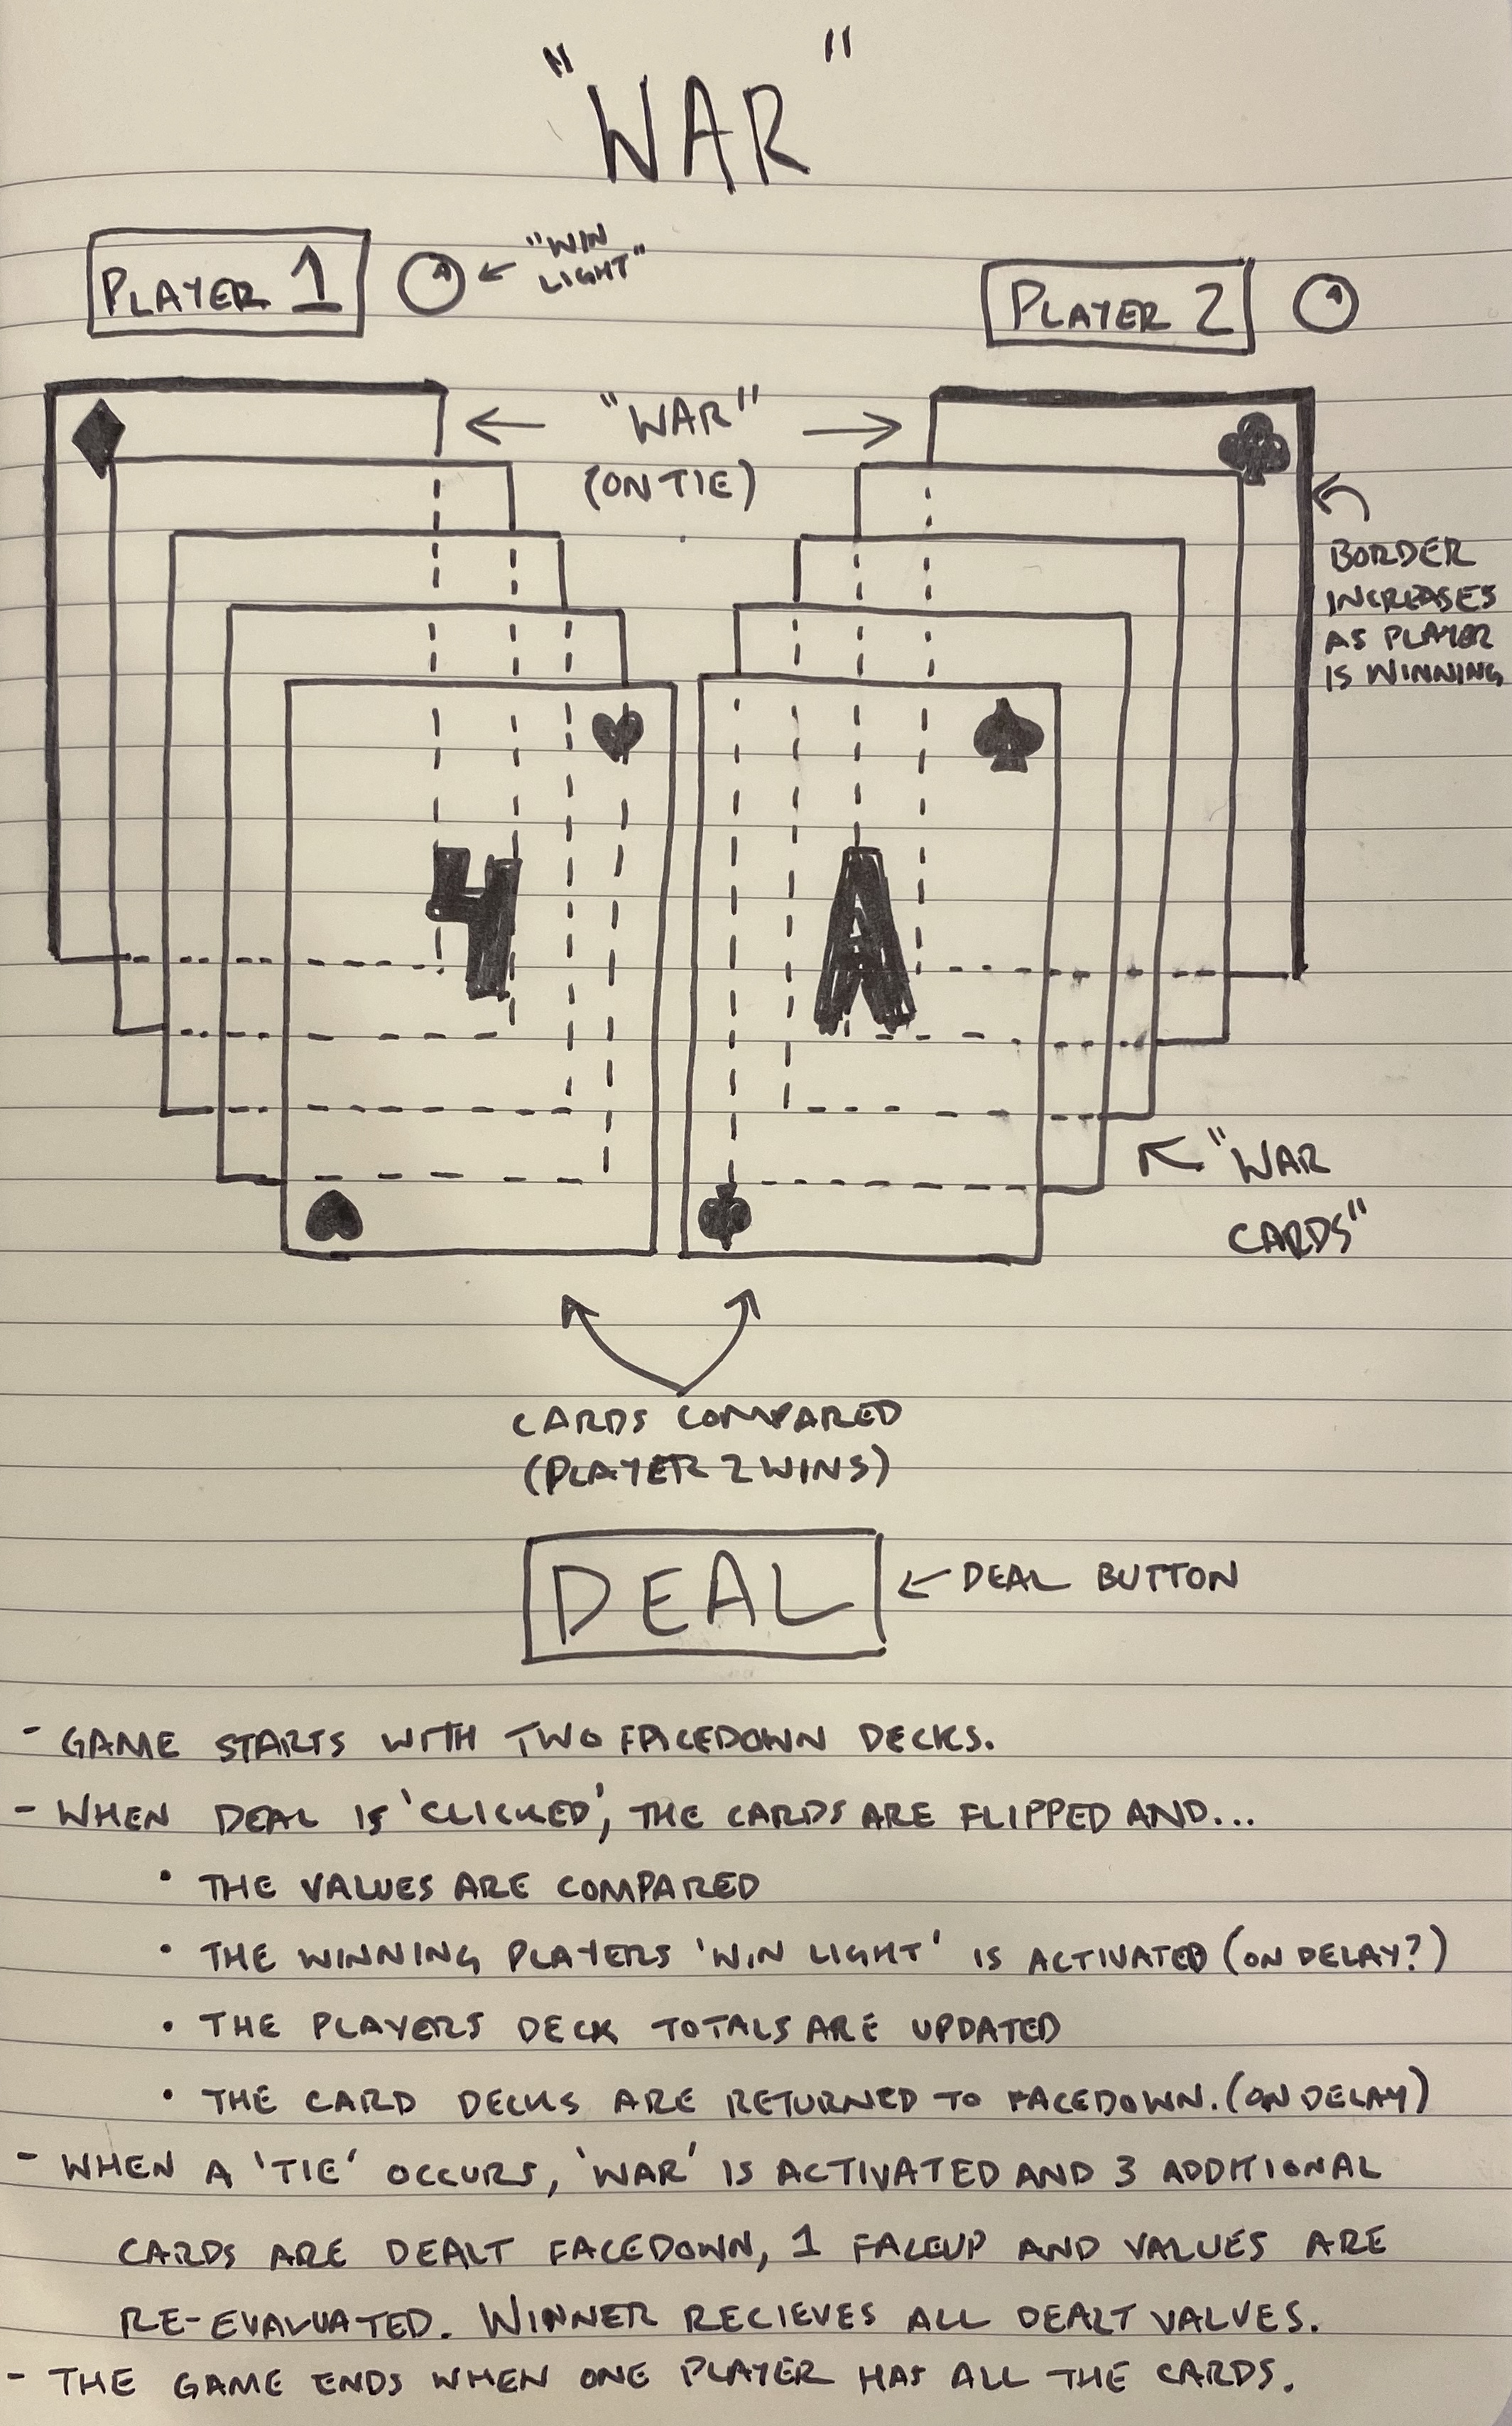 "WAR"
PLAYER 1
"WIN
LIGHT"
PLAYER 2
"WAR"
(ON TIE)
BORDER
INCREASES
AS PLAYER
IS WINNING
4
A
"WAR
CARDS"
CARDS COMPARED
(PLAYER 2 WINS)
DEAL
DEAL BUTTON
- GAME STARTS WITH TWO FACEDOWN DECKS.
- WHEN DEAL IS 'CLICKED', THE CARDS ARE FLIPPED AND...
• THE VALUES ARE COMPARED
• THE WINNING PLAYERS 'WIN LIGHT' IS ACTIVATED (ON DELAY?)
• THE PLAYERS DECK TOTALS ARE UPDATED
• THE CARD DECKS ARE RETURNED TO FACEDOWN. (ON DELAY)
- WHEN A 'TIE' OCCURS, 'WAR' IS ACTIVATED AND 3 ADDITIONAL
CARDS ARE DEALT FACEDOWN, 1 FACEUP AND VALUES ARE
RE-EVALUATED. WINNER RECIEVES ALL DEALT VALUES.
- THE GAME ENDS WHEN ONE PLAYER HAS ALL THE CARDS.